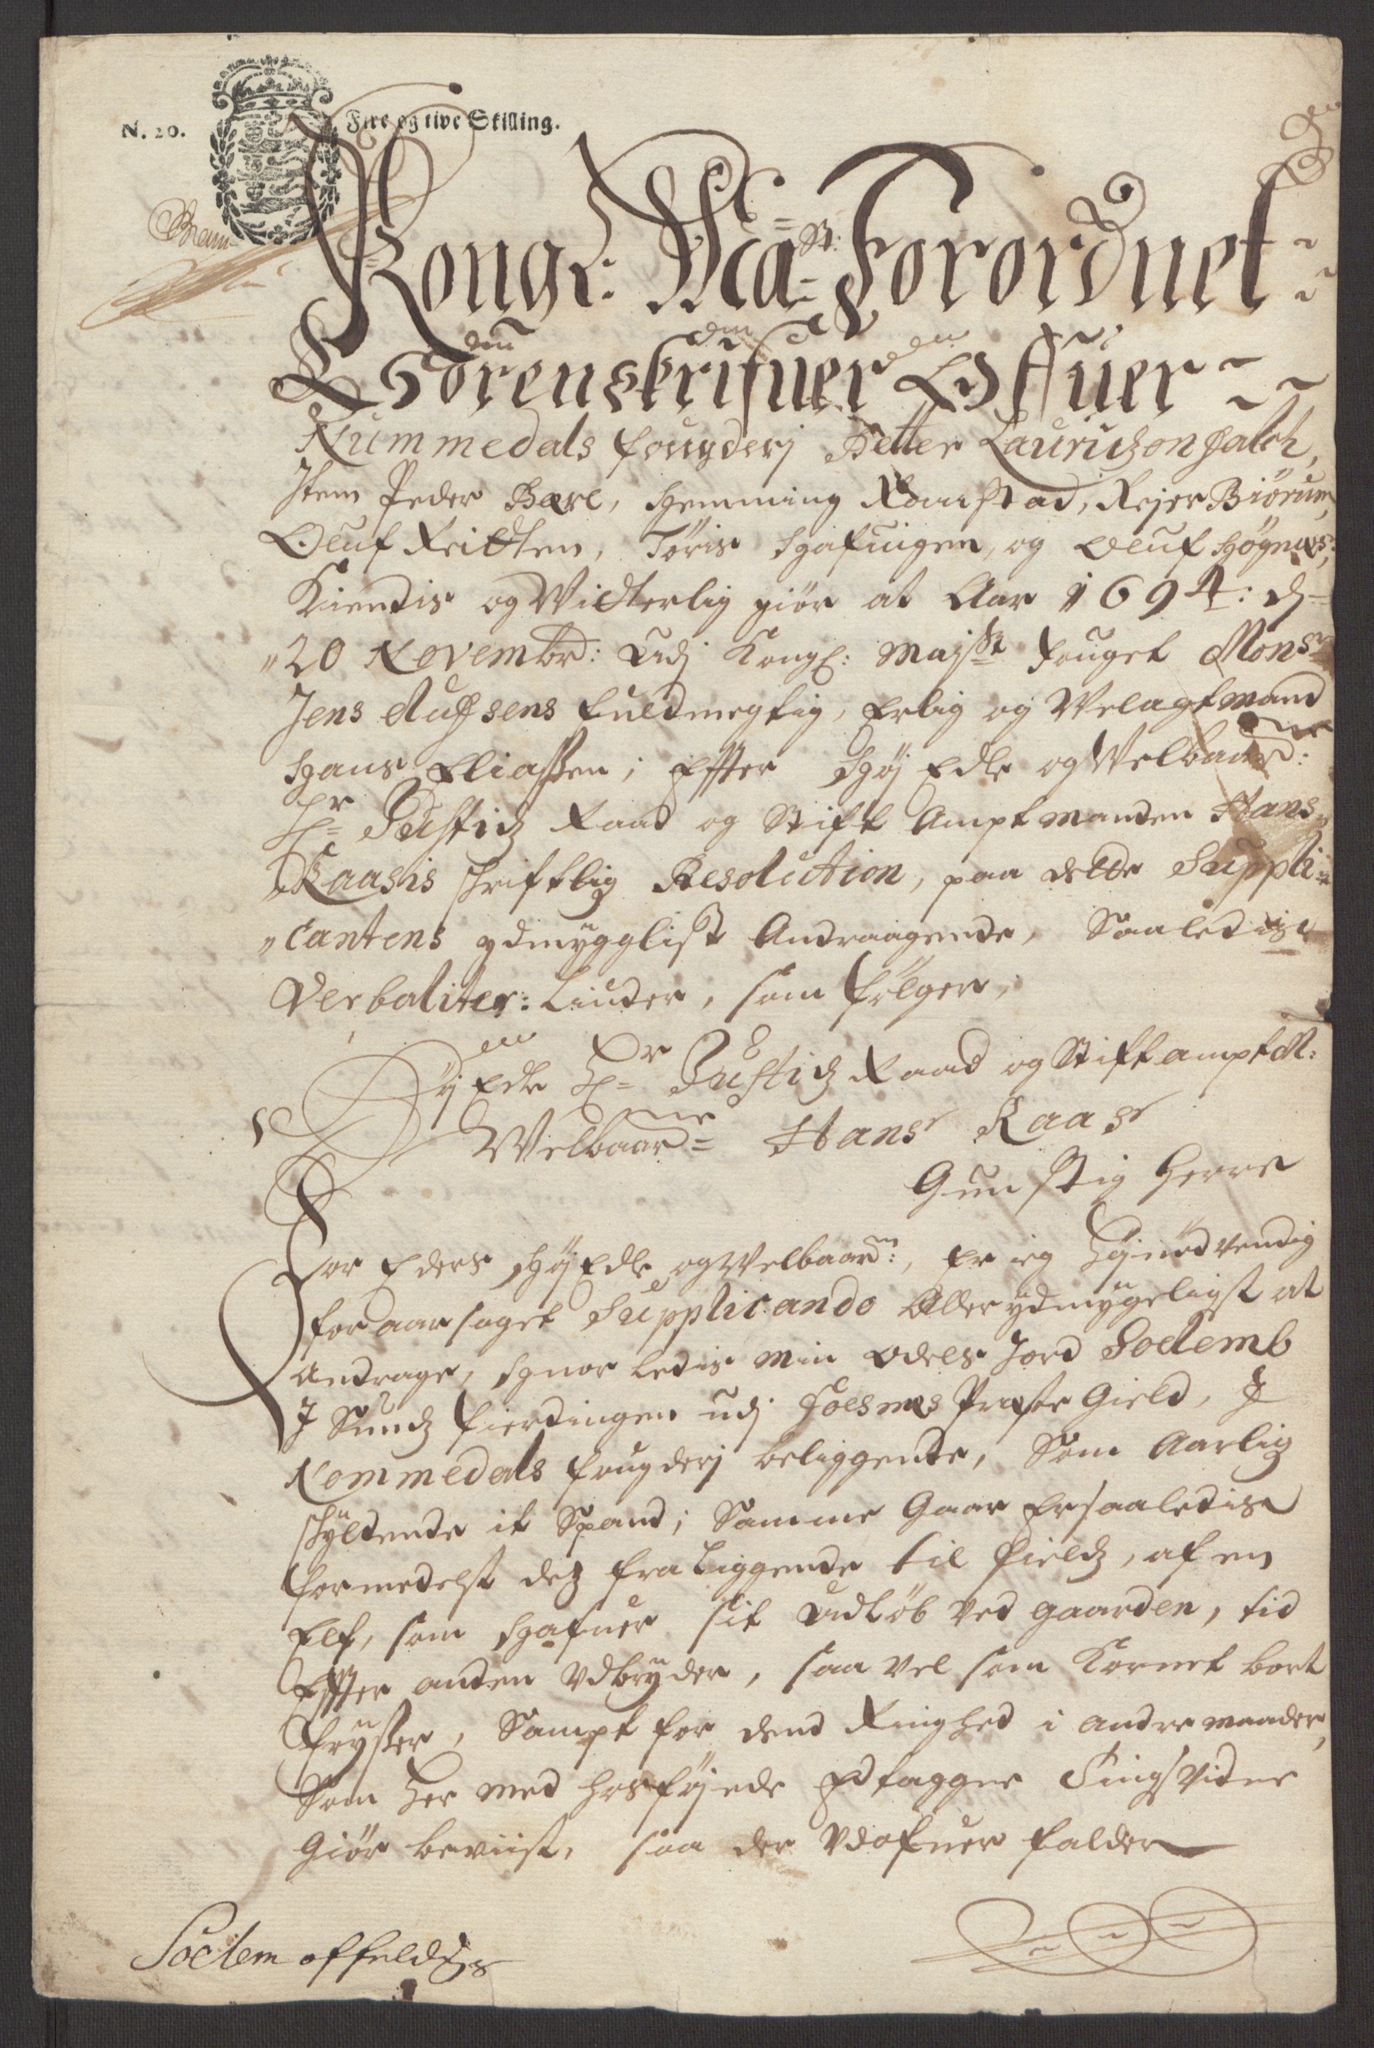 N. 20. Fire og tive Skilling.
Kongl: Ma:st: Forordnet
Sorenskrifuer Ofuer
Nummedals fougderj Petter Lauridzon Falch,
Item Peder Bære, Hemming Ramstad, Rejer Biørum,
Oluf Reitten, Tøris Hafuigen, og Oluf Høgnæs;
Kiendis og Vitterlig giør at Aar 1694: d
20 Novembr: Udj Kongl: Majst Fouget Monsr
Jens Aufsens fuldmegtig, Erlig og Velagt mand
Hans Eliassen; Effter Høj Edle og Velbaarne:
Hr Justidz Raad og Stift Amptmanden Hans
Kaasis schriftlig Resolution, paa dette Suppli-
cantens ydmyggligst Andragende, Saaledis
Verbaliter: Liuder, som følger,
Høj Edle Hr Justidz Raad og Stiftamptm:
Velbaarne Hans Kaas
Gunstig Herre
For Eders Høj Edle og Velbaarn:, Er ieg høj nødvendig
foraarsaget Supplicando Aller ydmygeligst at
Andrage, huorledis min odels Jord Soelemb
J Sundz fierdingen udj Foesnes Præste Gield, J
Nommedals fougderj beliggende, Som Aarlig
schyldende it Spand; Samme Gaar Er saaledis
formedelst dez fraliggende til fieldz, af en
Elf, som Hafuer sit Udløb ved gaarden, tid
Effter anden Udbryder, saa vel som Kornet bort
fryser, Sampt for dend Ringhed i andre maader,
Som her med hosføjede Edtagger Tingsvidne
Giør beviist, saa der Udofuer falder
Soelem affeldgs